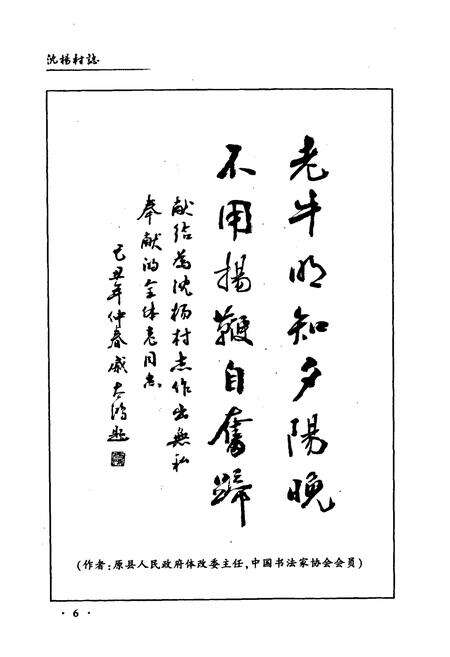 沈楊村誌
老牛明知夕陽晚
不用揚鞭自奮蹄
献给為沈杨村志作出無私
奉献的全体老同志
己丑年仲春戚大鸿题
(作者:原县人民政府体改委主任,中国书法家协会会员)
·6·